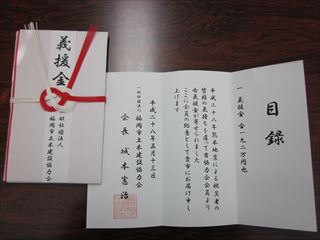 義援金
一般社団法人
福岡市土木建設協力会
目録
一 義援金 金一九二万円也
平成二十八年熊本地震による被災者の
皆様の気持ちを慮って当協力会会員より
右義援金が寄せられました
ここに会員の総意として貴市にお届け申し
上げます
平成二十八年五月十三日
一般社団法人 福岡市土木建設協力会
会長 城本憲治